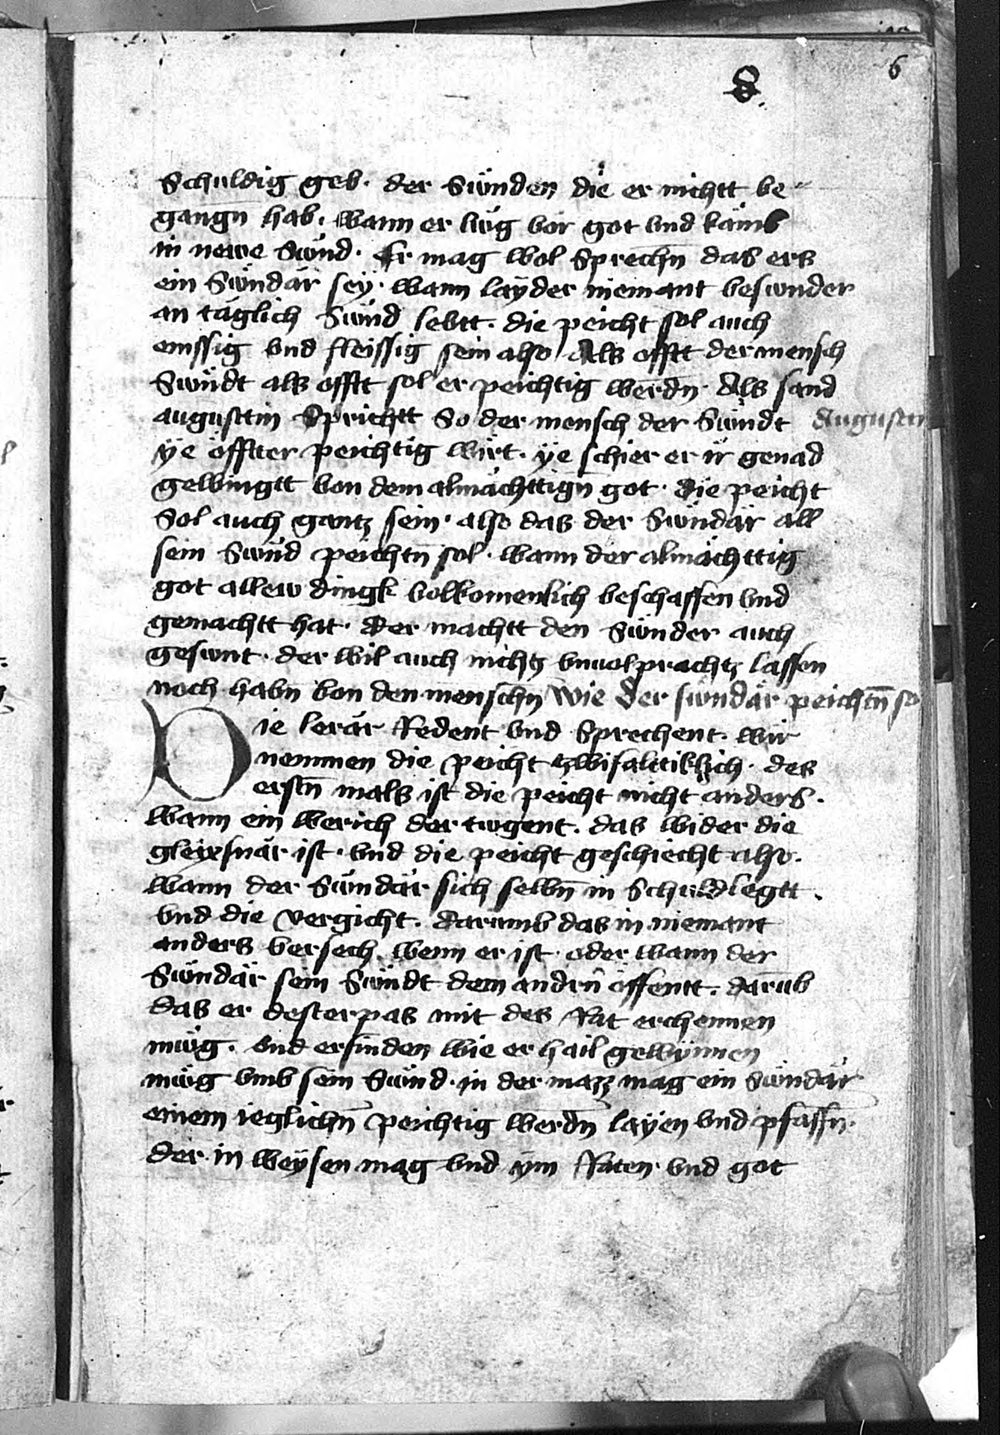 8.
6
Schuldig geb. der Sünden die er nichtt be-
gangn hab. wann er lüg vor got vnd käm
in newe Sünd. Er mag wol Sprechn das ers
ein Sündär sey. wann layder niemant besunder
an täglich Sünd lebtt. die peicht sol auch
emssig vnd fleissig sein also Als offtt der mensch
Sündt als offtt sol er peichtig werdn. Als sand
augusttin Sprichtt So der mensch der Sündt
Augustin
ye öffter peichtig wirt. ye schier er ir genad
gewingtt von dem almächttign got. Die peicht
Sol auch gantz sein. also das der Sündär all
sein Sünd peichtn sol. wann der almächttig
got allew dingk volkomenlich beschaffen vnd
gemachtt hat. Der machtt den Sünder auch
gesunt. der wil auch nichtz vnuolprachtz lassen
noch habn von den menschn Wie der sündär peichtn so
Die lerär Redent vnd Sprechent. wir
nemmen die peicht zwifaltiklich. des
erstn mals ist die peicht nicht anders.
wann ein werich der tugent. das wider die
gleyxsnär ist. vnd die peicht geschiecht also.
wann der Sündär sich selbn in Schuld legtt.
vnd die vergicht. Darumb das in niemant
anders versech. wenn er ist. oder wann der
Sündär sein Sündt dem andrn öffentt. darub
das er dester pas mit des Rat erchennen
müg. vnd erfinden wie er hail gewynnen
müg vmb sein Sünd. in der mazz mag ein Sündär
einem ieglichn peichtig werdn layen vnd pfaffn.
der in weysen mag vnd ym Raten. vnd got